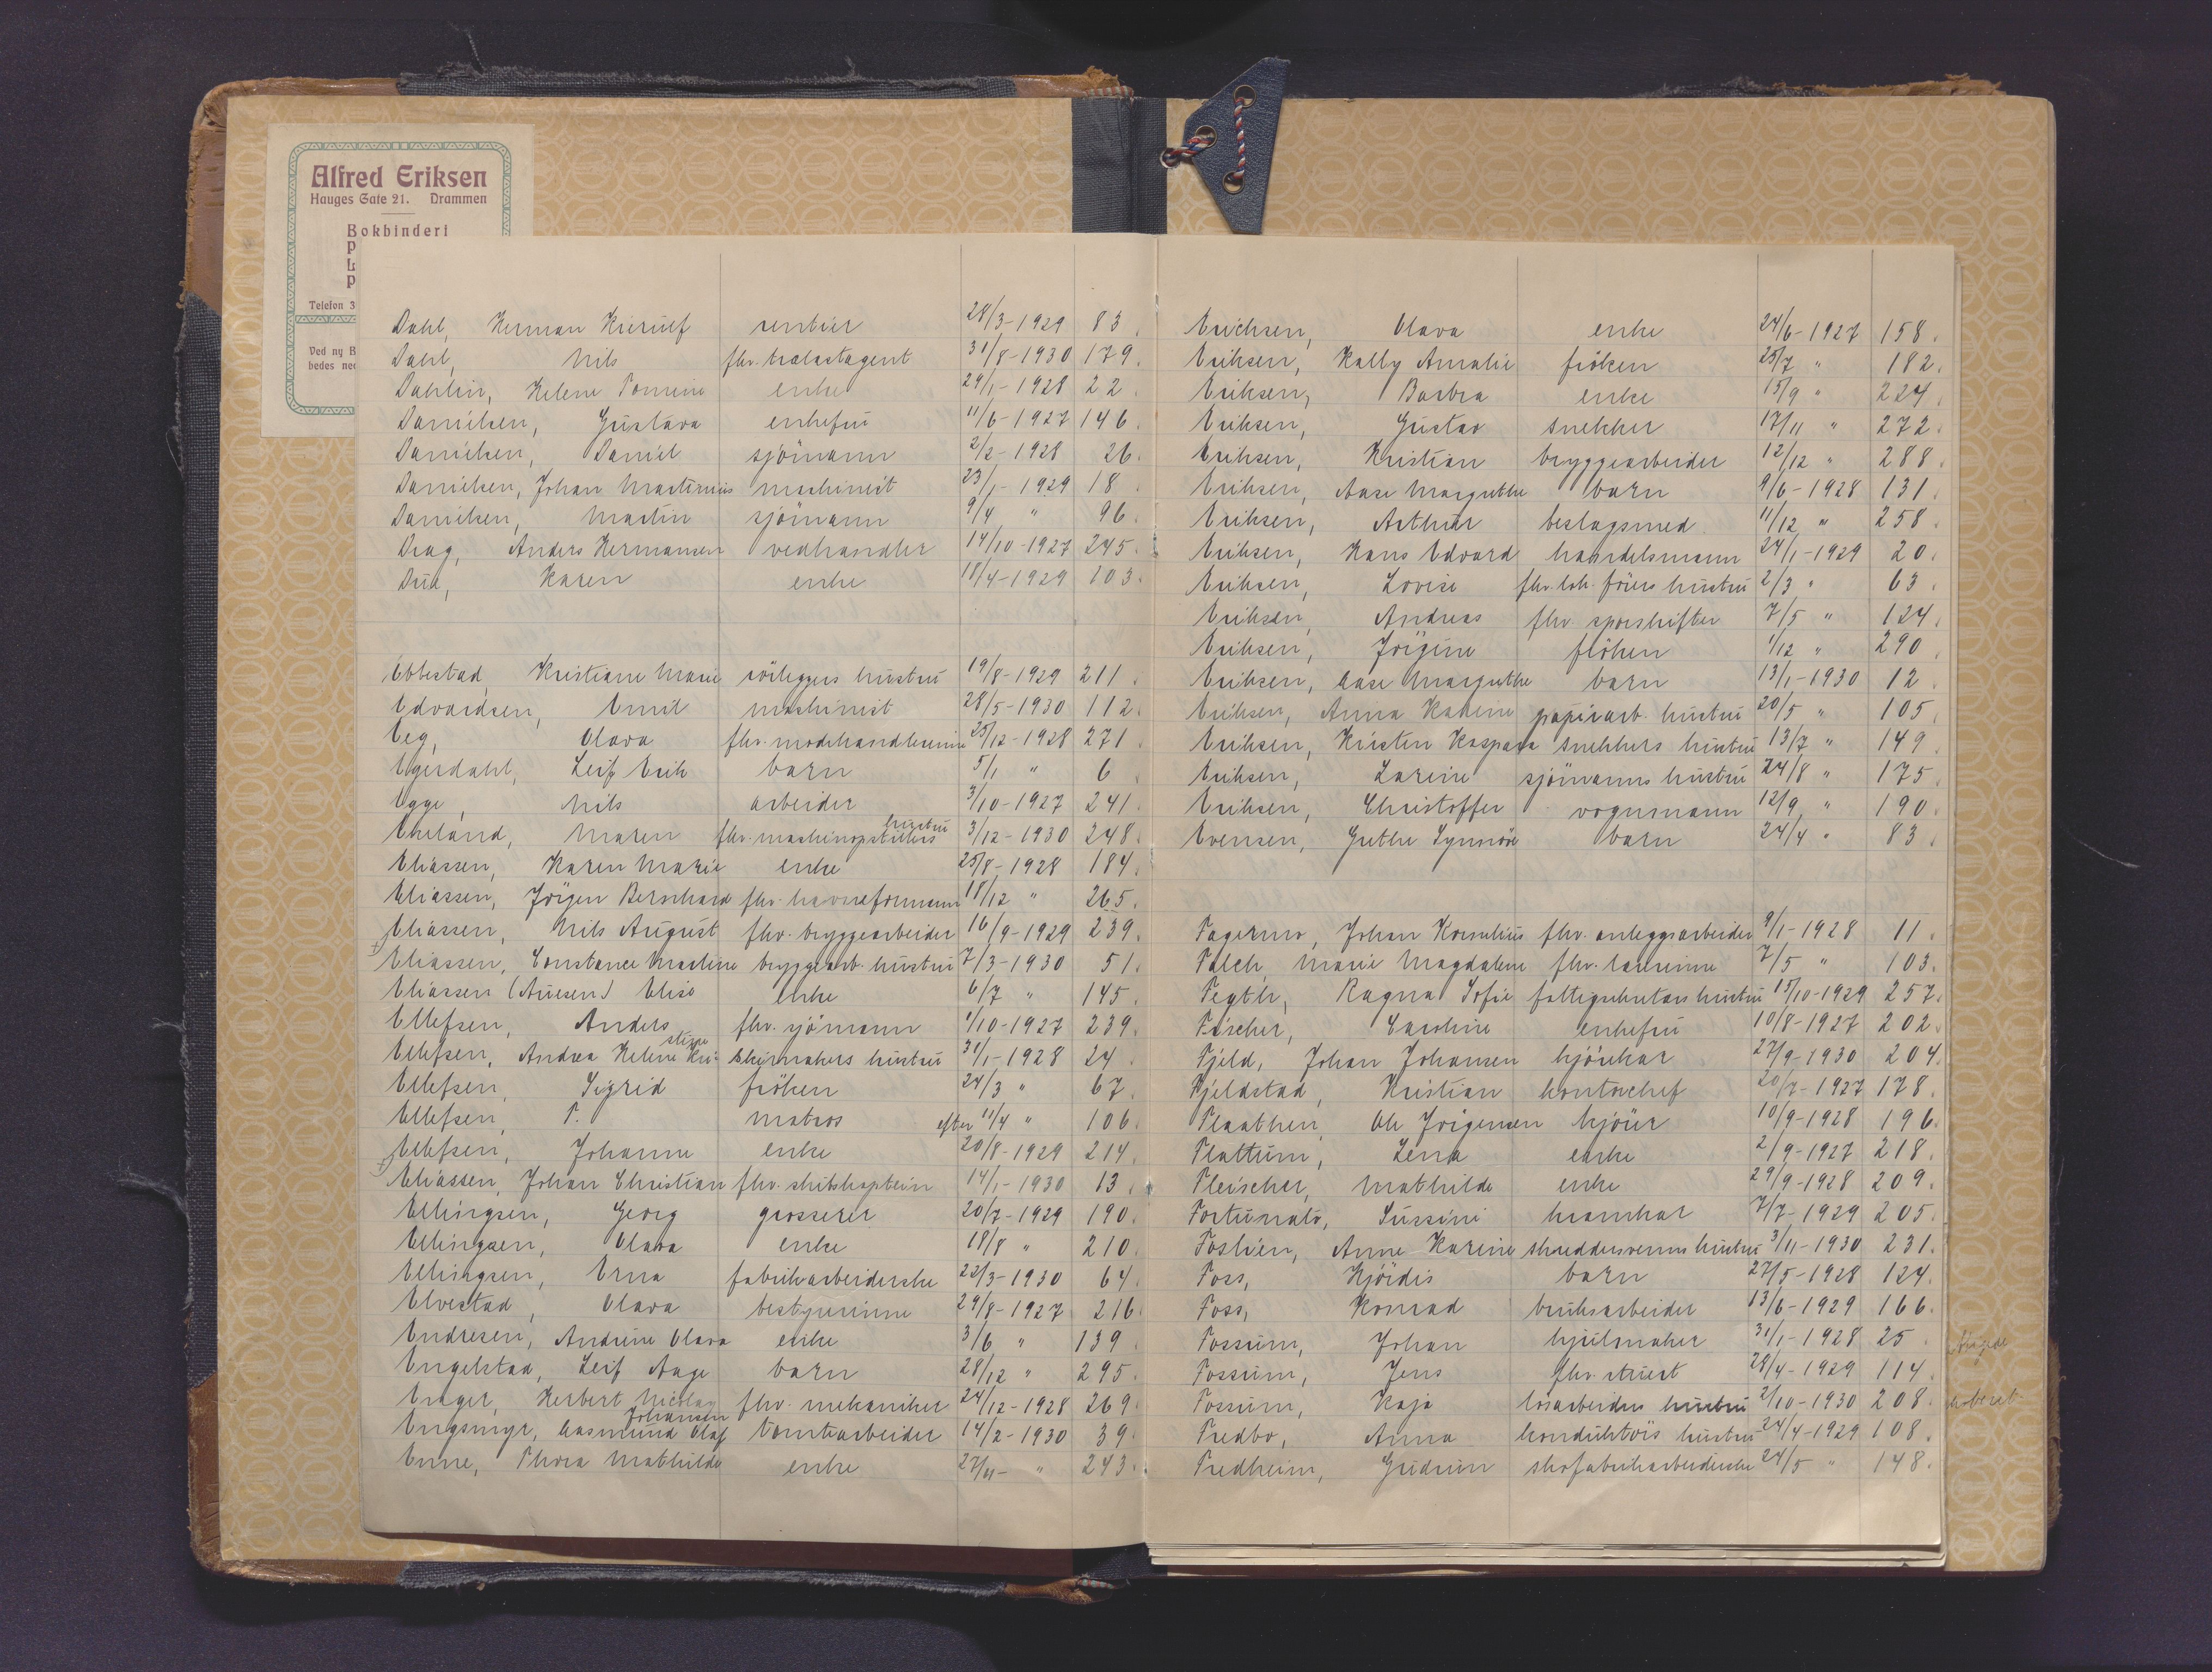 Alfred Eriksen
Hauges Gate 21. Drammen
Bokbinderi
Telefon 3
Ved ny B
bedes ned
Dahl, Herman Kierulf rentier 28/3-1929 83.
Dahl, Nils fhv. trælastagent 31/8-1930 179.
Dahlin, Helene Tomine enke 24/1-1928 22.
Danielsen, Gustava enkefru 11/6-1927 146.
Danielsen, Daniel sjömann 2/2-1928 26.
Danielsen, Johan Martinius maskinist 23/1-1929 18.
Danielsen, Martin sjömann 9/4 " 96.
Drag, Anders Hermansen vedhandler 14/10-1927 245.
Dud, Karen enke 18/4-1929 103.
Ebbestad, Kristiane Marie rörleggers hustru 19/8-1929 211.
Edvardsen, Emil maskinist 28/5-1930 112.
Eeg, Olava fhv. modehandlerinne 25/12-1928 271.
Egerdahl, Leif Erik barn 5/1 " 6
Egge, Nils arbeider 3/10-1927 241.
Ekeland, Maren fhv. maskinopsetters hustru 3/12-1930 248.
Eliassen, Karen Marie enke 25/8-1928 184.
Eliassen, Jörgen Bernhard fhv. havneformann 18/12 " 265.
Eliassen, Nils August fhv. bryggearbeider 16/9-1929 239.
Eliassen, Constance Martine bryggearb. hustru 7/3-1930 51.
Eliassen (Auesen) Elise enke 6/7 " 145.
Ellefsen, Anders fhv. sjömann 1/10-1927 239.
Ellefsen, Andrea Helene Kristine skipmakers hustru 31/1-1928 24.
Ellefsen, Sigrid fröken 24/3 " 67.
Ellefsen, P. matros efter 11/4 " 106.
Ellefsen, Johanne enke 20/8-1929 214.
Eliassen, Johan Christian fhv. skibskaptein 14/1-1930 13.
Ellingsen, Georg grosserer 20/7-1929 190.
Ellingsen, Olava enke 18/8 " 210.
Ellingsen, Erna fabrikarbeiderske 22/3-1930 64.
Elvestad, Olava bestyrerinne 29/8-1927 216.
Endresen, Andrine Olava enke 3/6 " 139.
Engelstad, Leif Aage barn 28/12 " 295.
Enger, Herbert Nicolay fhv. mekaniker 24/12-1928 269.
Engsmyr, Aasmund Olaf Johansen tomtearbeider 14/2-1930 39.
Enne, Thora Mathilde enke 27/11- " 243.
Erichsen, Olava enke 24/6-1927 158.
Eriksen, Kally Amalie fröken 25/7 " 182.
Eriksen, Barbra enke 15/9 " 224.
Eriksen, Gustav snekker 17/11 " 272.
Eriksen, Kristian bryggearbeider 12/12 " 288.
Eriksen, Aase Margrethe barn 9/6-1928 131.
Eriksen, Arthur beslagsmed 11/12 " 258.
Eriksen, Hans Edvard handelsmann 24/1-1929 20.
Eriksen, Lovise fhv. lok. förers hustru 2/3 " 63.
Eriksen, Andreas fhv. sporskifter 7/5 " 124.
Eriksen, Jörgine fröken 1/12 " 290.
Eriksen, Aase Margrethe barn 13/1-1930 12.
Eriksen, Anna Katrine papirarb. hustru 20/5 " 105.
Eriksen, Kirsten Kaspara snekkers hustru 13/7 " 149.
Eriksen, Larine sjömanns hustru 24/8 " 175.
Eriksen, Christoffer vognmann 12/9 " 190.
Evensen, Grethe Synnöve barn 24/4 " 83.
Fagermo, Johan Kornelius fhv. anleggsarbeider 9/1-1928 11.
Falch, Marie Magdalene fhv. lærerinne 7/5 " 103.
Fegth, Ragna Sofie fattigsekretærs hustru 15/10-1929 257.
Fischer, Caroline enkefru 10/8-1927 202.
Fjeld, Johan Johansen kjörekar 27/9-1930 204.
Fjeldstad, Kristian kontorchef 20/7-1927 178.
Flaathen, Ole Jörgensen kjörer 10/9-1928 196.
Flattum, Lena enke 2/9-1927 218.
Fleischer, Mathilde enke 29/9-1928 209.
Fortunato, Sussini kramkar 7/7-1929 205.
Foslien, Anne Karine skreddersvenns hustru 3/11-1930 231.
Foss, Hjördis barn 27/5-1928 124.
Foss, Konrad bruksarbeider 13/6-1929 166.
Fossum, Johan hjulmaker 31/1-1928 25.
Fossum, Jens fhv. struer 28/4-1929 114.
Fossum, Kaja losarbeiders hustru 2/10-1930 208.
Fredbo, Anna konduktörs hustru 24/4-1929 108.
Fredheim, Gudrun skofabrikarbeiderske 24/5 " 148.